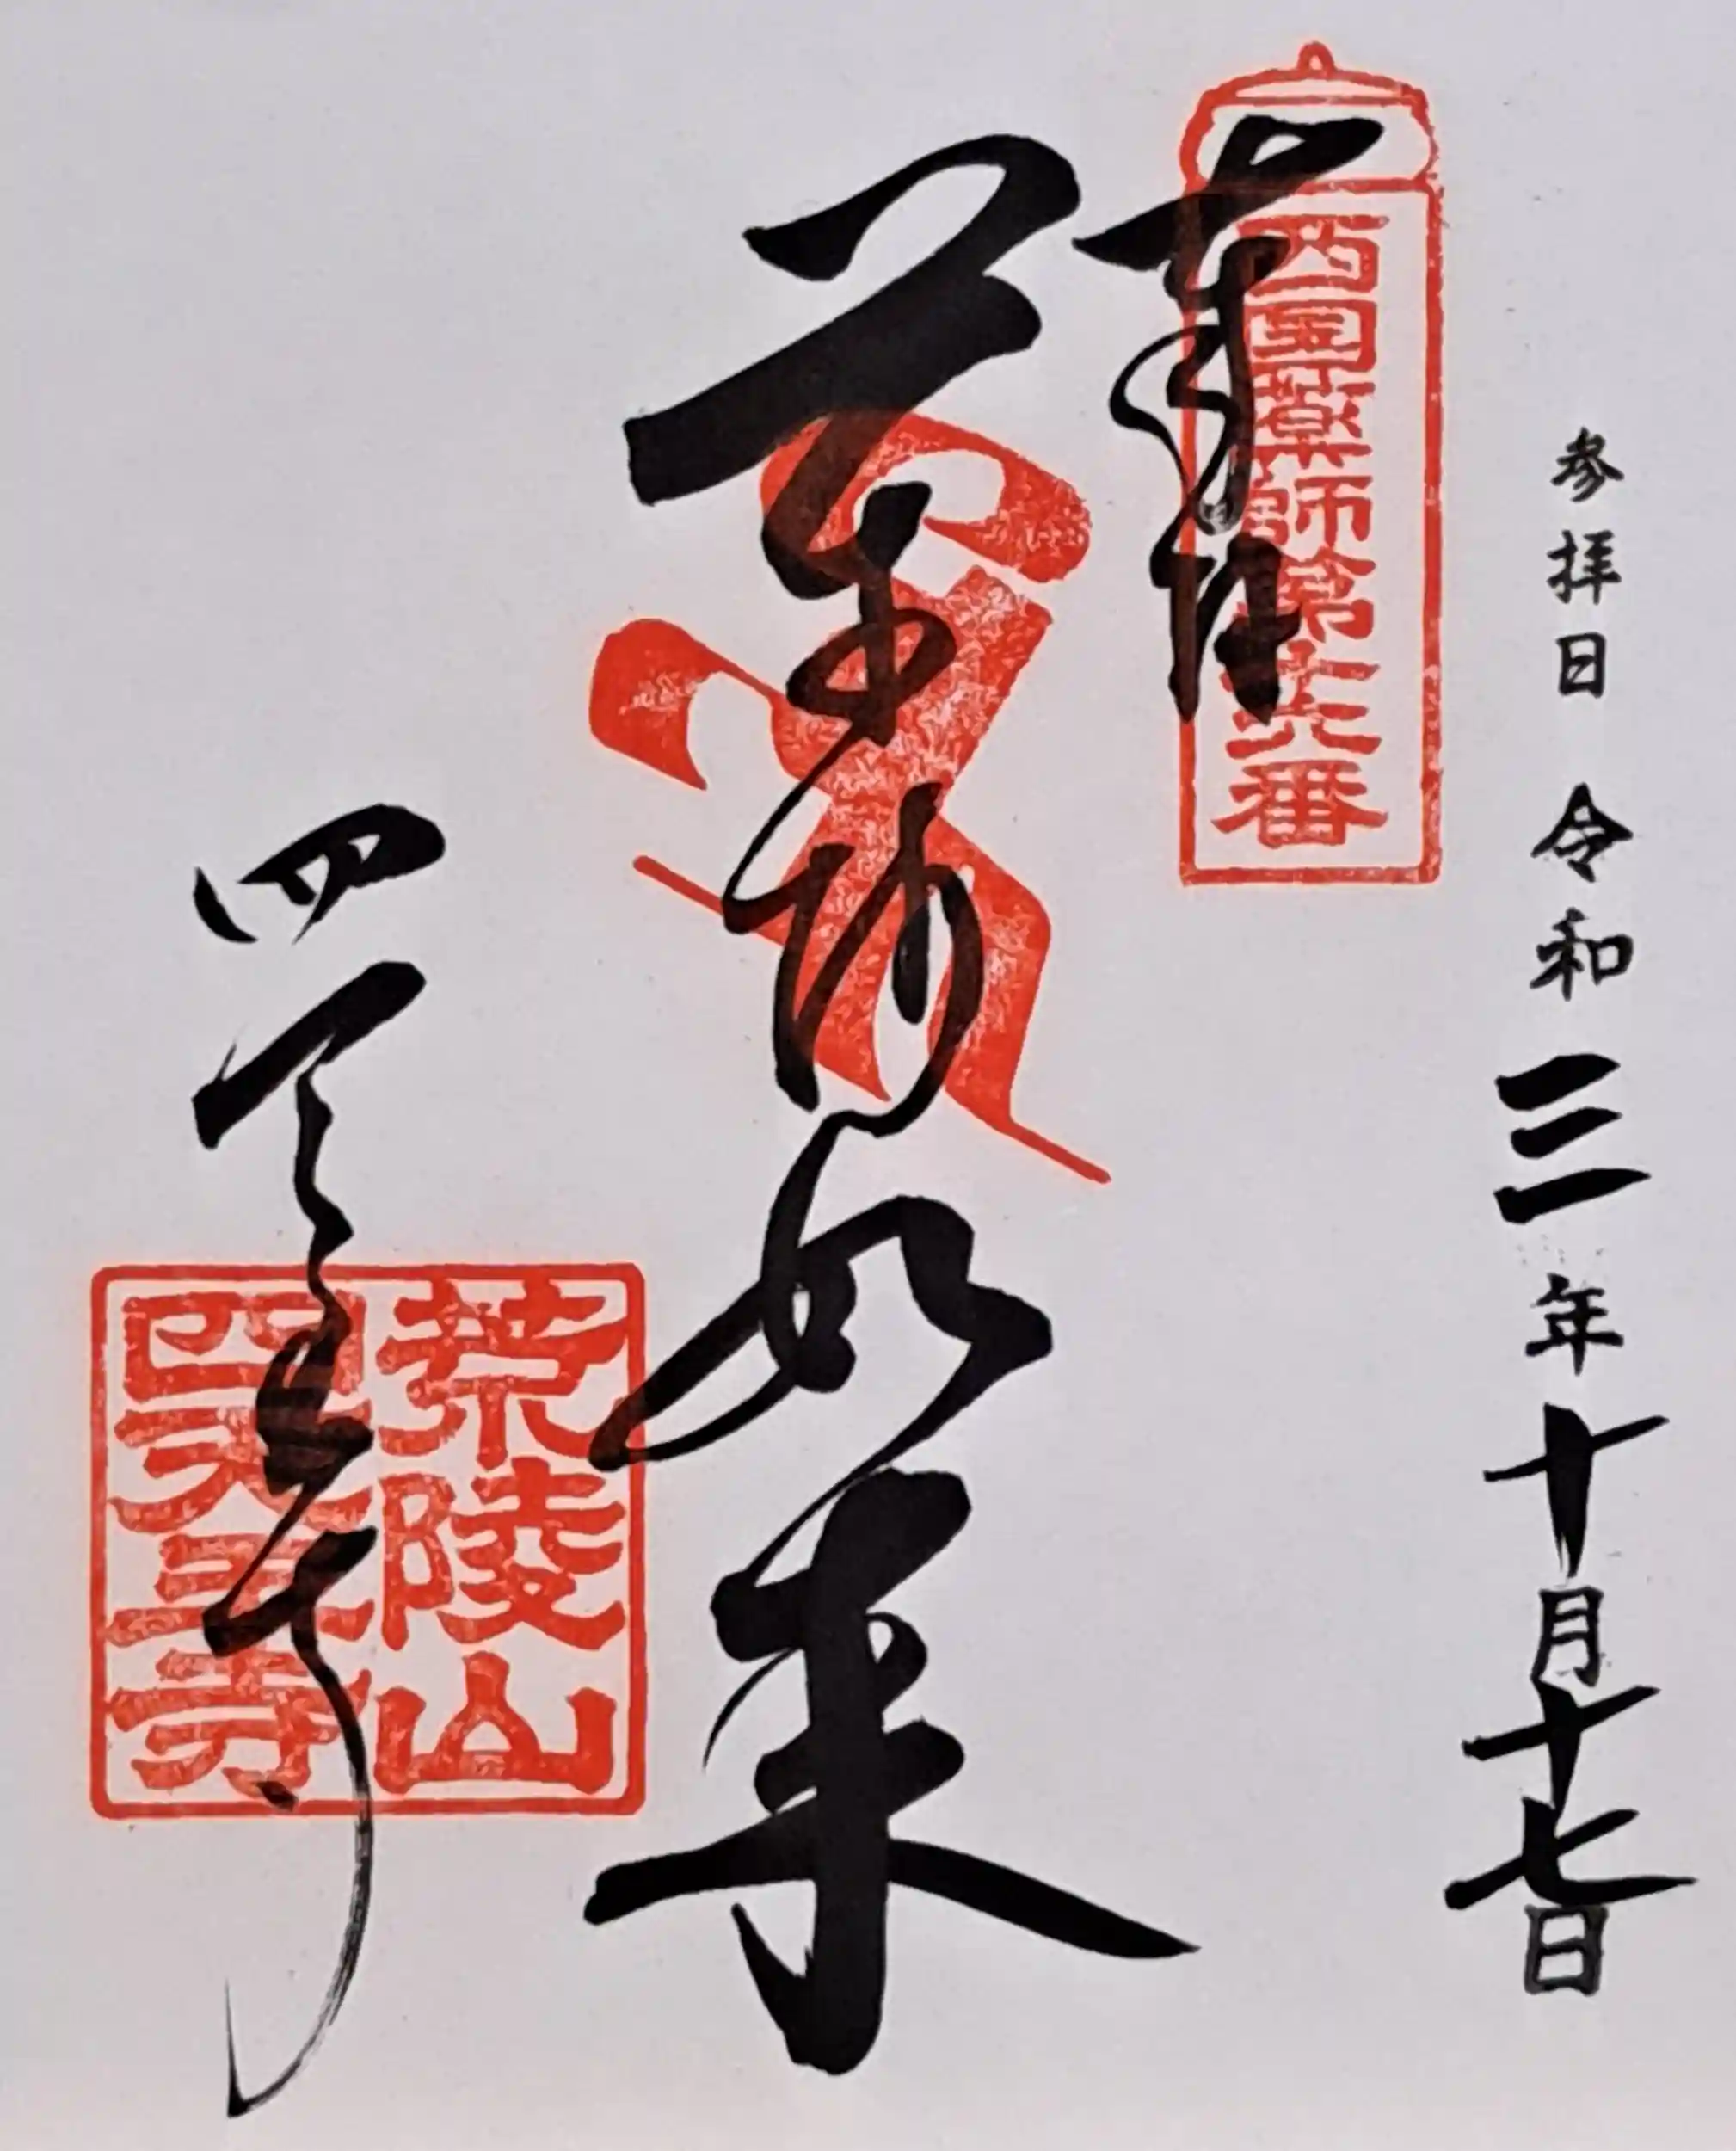 参拝日 令和三年十月十七日
西國薬師第十六番
奉拝
薬師如来
荒陵山
四天王寺
四天王寺